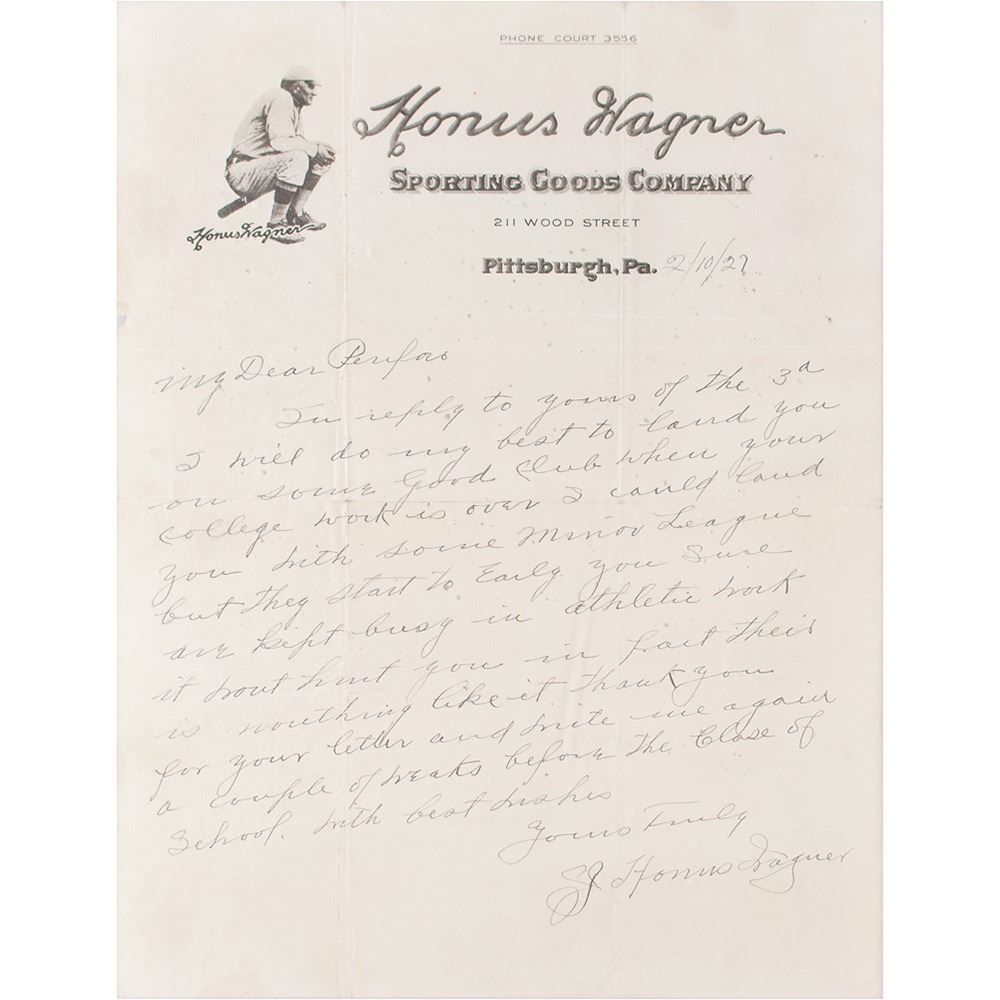 PHONE COURT 3556
Honus Wagner
SPORTING GOODS COMPANY
211 WOOD STREET
Pittsburgh, Pa. 2/10/27
Honus Wagner
My Dear
In reply to yours of the 3d
I will do my best to land you
on some Good Club when your
college work is over I could land
you with some Minor League
but they start to Early you Sure
are kept busy in athletic work
it wont hurt you in fact their
is nouthing like it thank you
for your letter and write me again
a couple of weaks before the Close of
School. with best wishes
Yours Truly
J Honus Wagner